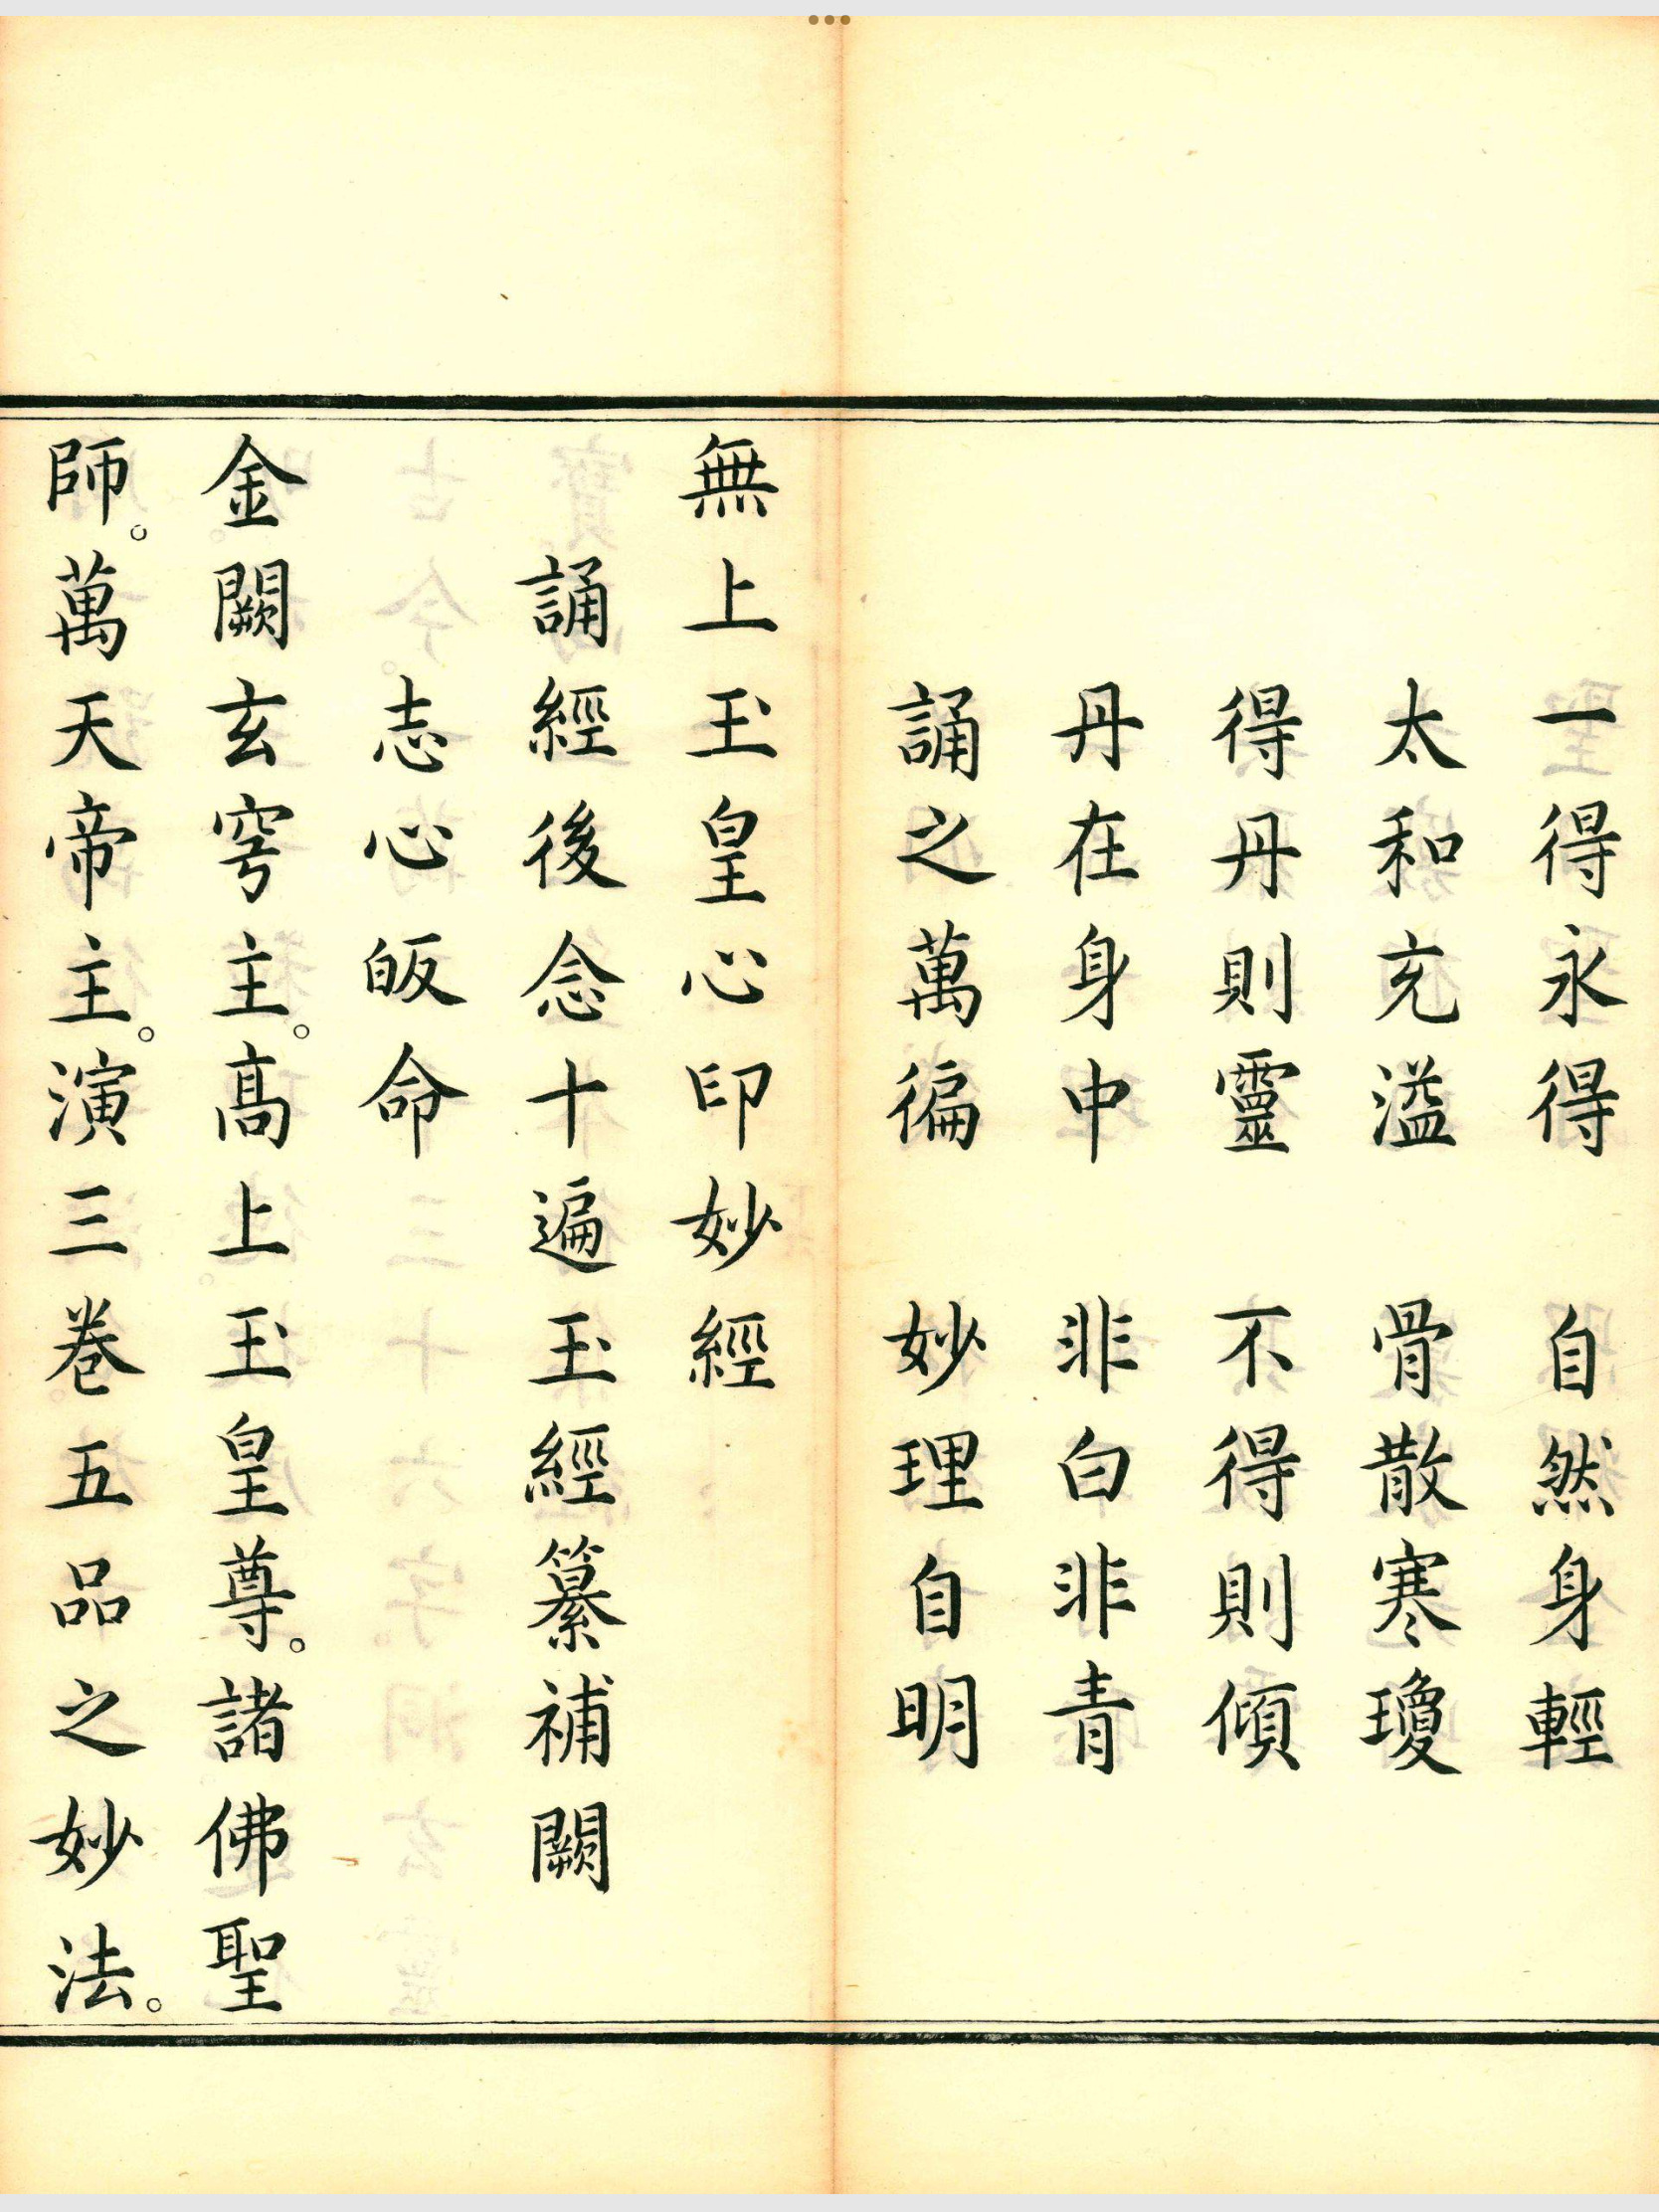 一得永得　自然身輕
太和充溢　骨散寒瓊
得丹則靈　不得則傾
丹在身中　非白非青
誦之萬徧　妙理自明
無上玉皇心印妙經
誦經後念十遍玉經纂補闕
志心皈命
金闕玄穹主。高上玉皇尊。諸佛聖
師。萬天帝主。演三卷五品之妙法。